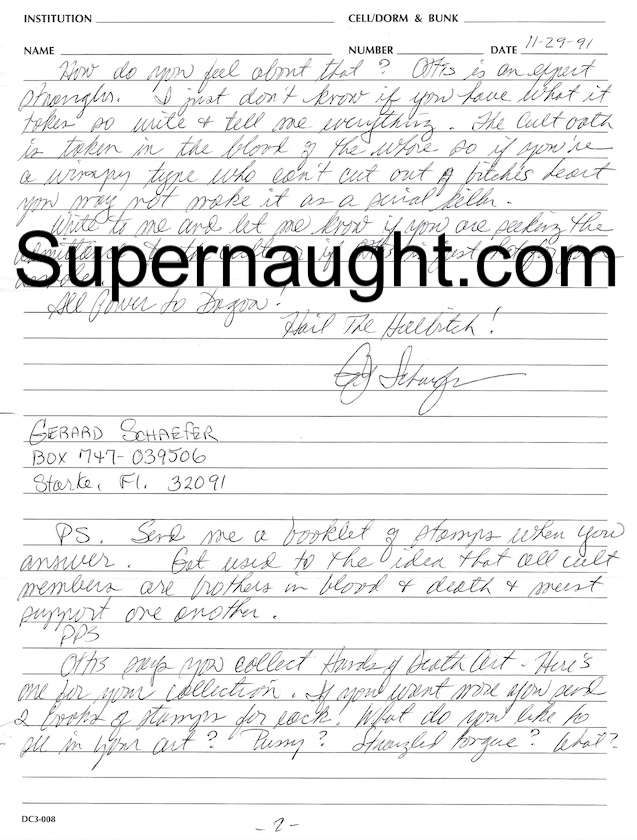 INSTITUTION CELL/DORM & BUNK
NAME NUMBER DATE 11-29-91
How do you feel about that? Ottis is an expert
strangler. I just don't know if you have what it
takes so write & tell me everything. The Cult oath
is taken in the blood of the whore so if you're
a wimpy type who can't cut out a bitch's heart
you may not make it as a serial killer.
Write to me and let me know if you are seeking the
Supernaught.com
All Power to Dagon!
Hail The Hellbitch!
GJ Schaefer
GERARD SCHAEFER
BOX 747-039506
Starke, Fl. 32091
PS. Send me a booklet of stamps when you
answer. Get used to the idea that all cult
members are brothers in blood & death & must
support one another.
PPS
Ottis says you collect Hands of Death Art - Here's
one for your collection. If you want more you send
2 books of stamps for each. What do you like to
see in your art? Pussy? Strangled tongue? What?
DC3-008
-2-